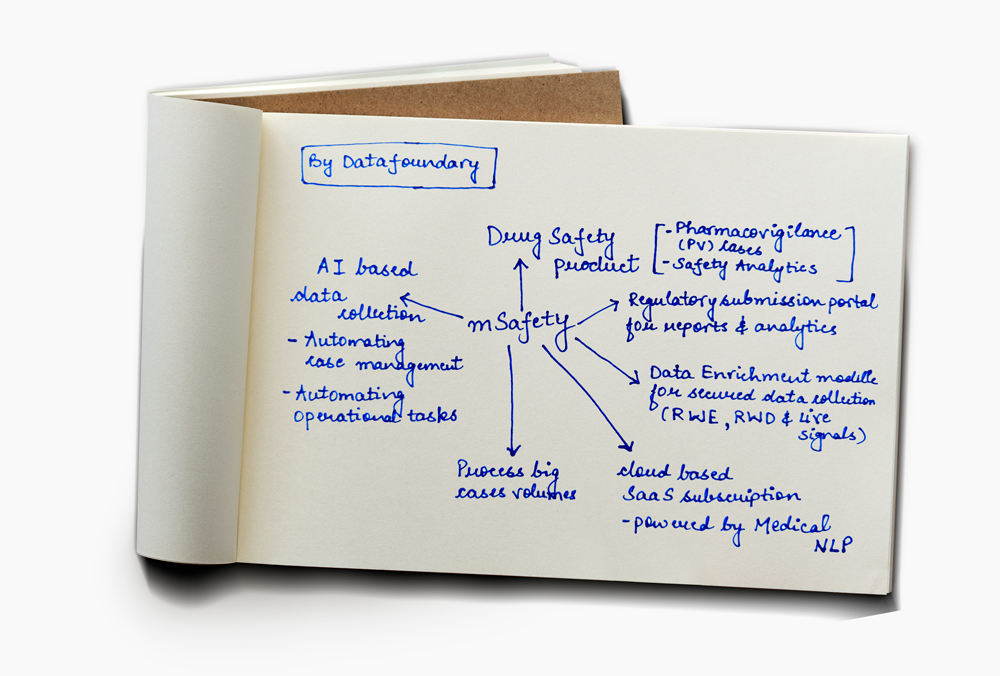 By Datafoundary
Drug Safety
product
- Pharmacovigilance
(PV) cases
- Safety Analytics
AI based
data
collection
- Automating
case management
- Automating
operational tasks
mSafety
Regulatory submission portal
for reports & analytics
Data Enrichment module
for secured data collection
(RWE, RWD & Live
signals)
Process big
cases volumes
cloud based
SaaS subscription
- powered by Medical
NLP